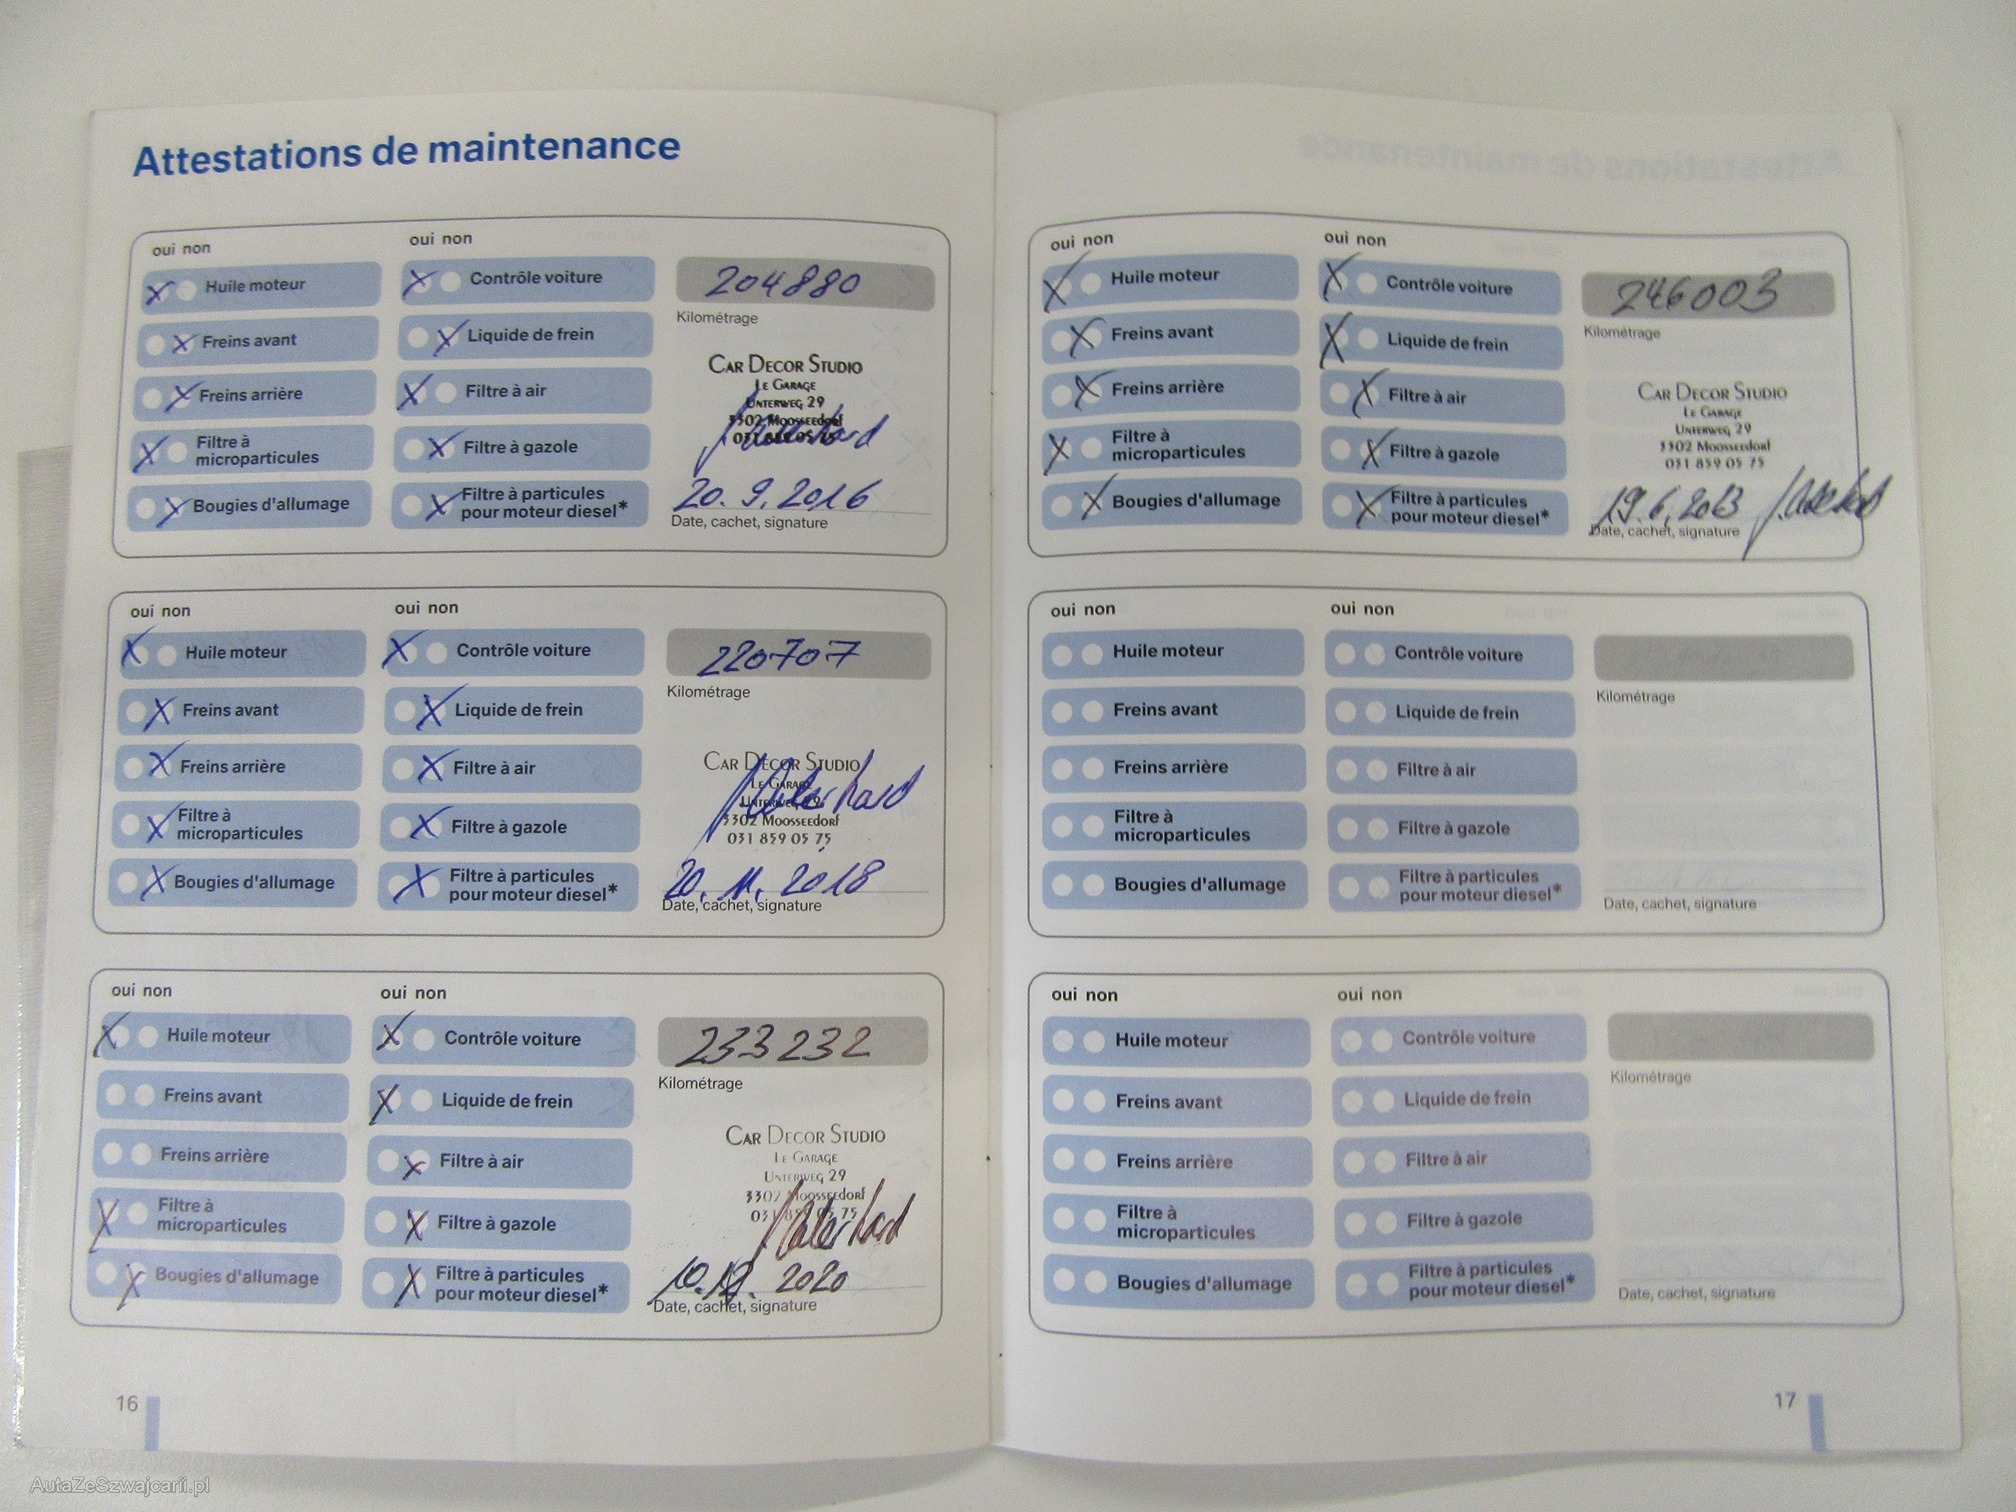 Attestations de maintenance
oui non
oui non
Huile moteur
Contrôle voiture
204880
Freins avant
Liquide de frein
Kilométrage
Freins arrière
Filtre à air
CAR DECOR STUDIO
LE GARAGE
UNTERWEG 29
3302 MOOSSEEDORF
Filtre à
microparticules
Filtre à gazole
Bougies d'allumage
Filtre à particules
pour moteur diesel*
20.9.2016
Date, cachet, signature
oui non
oui non
Huile moteur
Contrôle voiture
220707
Freins avant
Liquide de frein
Kilométrage
Freins arrière
Filtre à air
CAR DECOR STUDIO
LE GARAGE
UNTERWEG 29
3302 MOOSSEEDORF
031 859 05 75
Filtre à
microparticules
Filtre à gazole
Bougies d'allumage
Filtre à particules
pour moteur diesel*
20.11.2018
Date, cachet, signature
oui non
oui non
Huile moteur
Contrôle voiture
233232
Freins avant
Liquide de frein
Kilométrage
Freins arrière
Filtre à air
CAR DECOR STUDIO
LE GARAGE
UNTERWEG 29
3302 MOOSSEEDORF
031 859 05 75
Filtre à
microparticules
Filtre à gazole
Bougies d'allumage
Filtre à particules
pour moteur diesel*
10.12.2020
Date, cachet, signature
16
oui non
oui non
Huile moteur
Contrôle voiture
246003
Freins avant
Liquide de frein
Kilométrage
Freins arrière
Filtre à air
CAR DECOR STUDIO
LE GARAGE
UNTERWEG 29
3302 MOOSSEEDORF
031 859 05 75
Filtre à
microparticules
Filtre à gazole
Bougies d'allumage
Filtre à particules
pour moteur diesel*
Date, cachet, signature
oui non
oui non
Huile moteur
Contrôle voiture
Freins avant
Liquide de frein
Kilométrage
Freins arrière
Filtre à air
Filtre à
microparticules
Filtre à gazole
Bougies d'allumage
Filtre à particules
pour moteur diesel*
Date, cachet, signature
oui non
oui non
Huile moteur
Contrôle voiture
Freins avant
Liquide de frein
Kilométrage
Freins arrière
Filtre à air
Filtre à
microparticules
Filtre à gazole
Bougies d'allumage
Filtre à particules
pour moteur diesel*
Date, cachet, signature
17
AutaZeSzwajcarii.pl